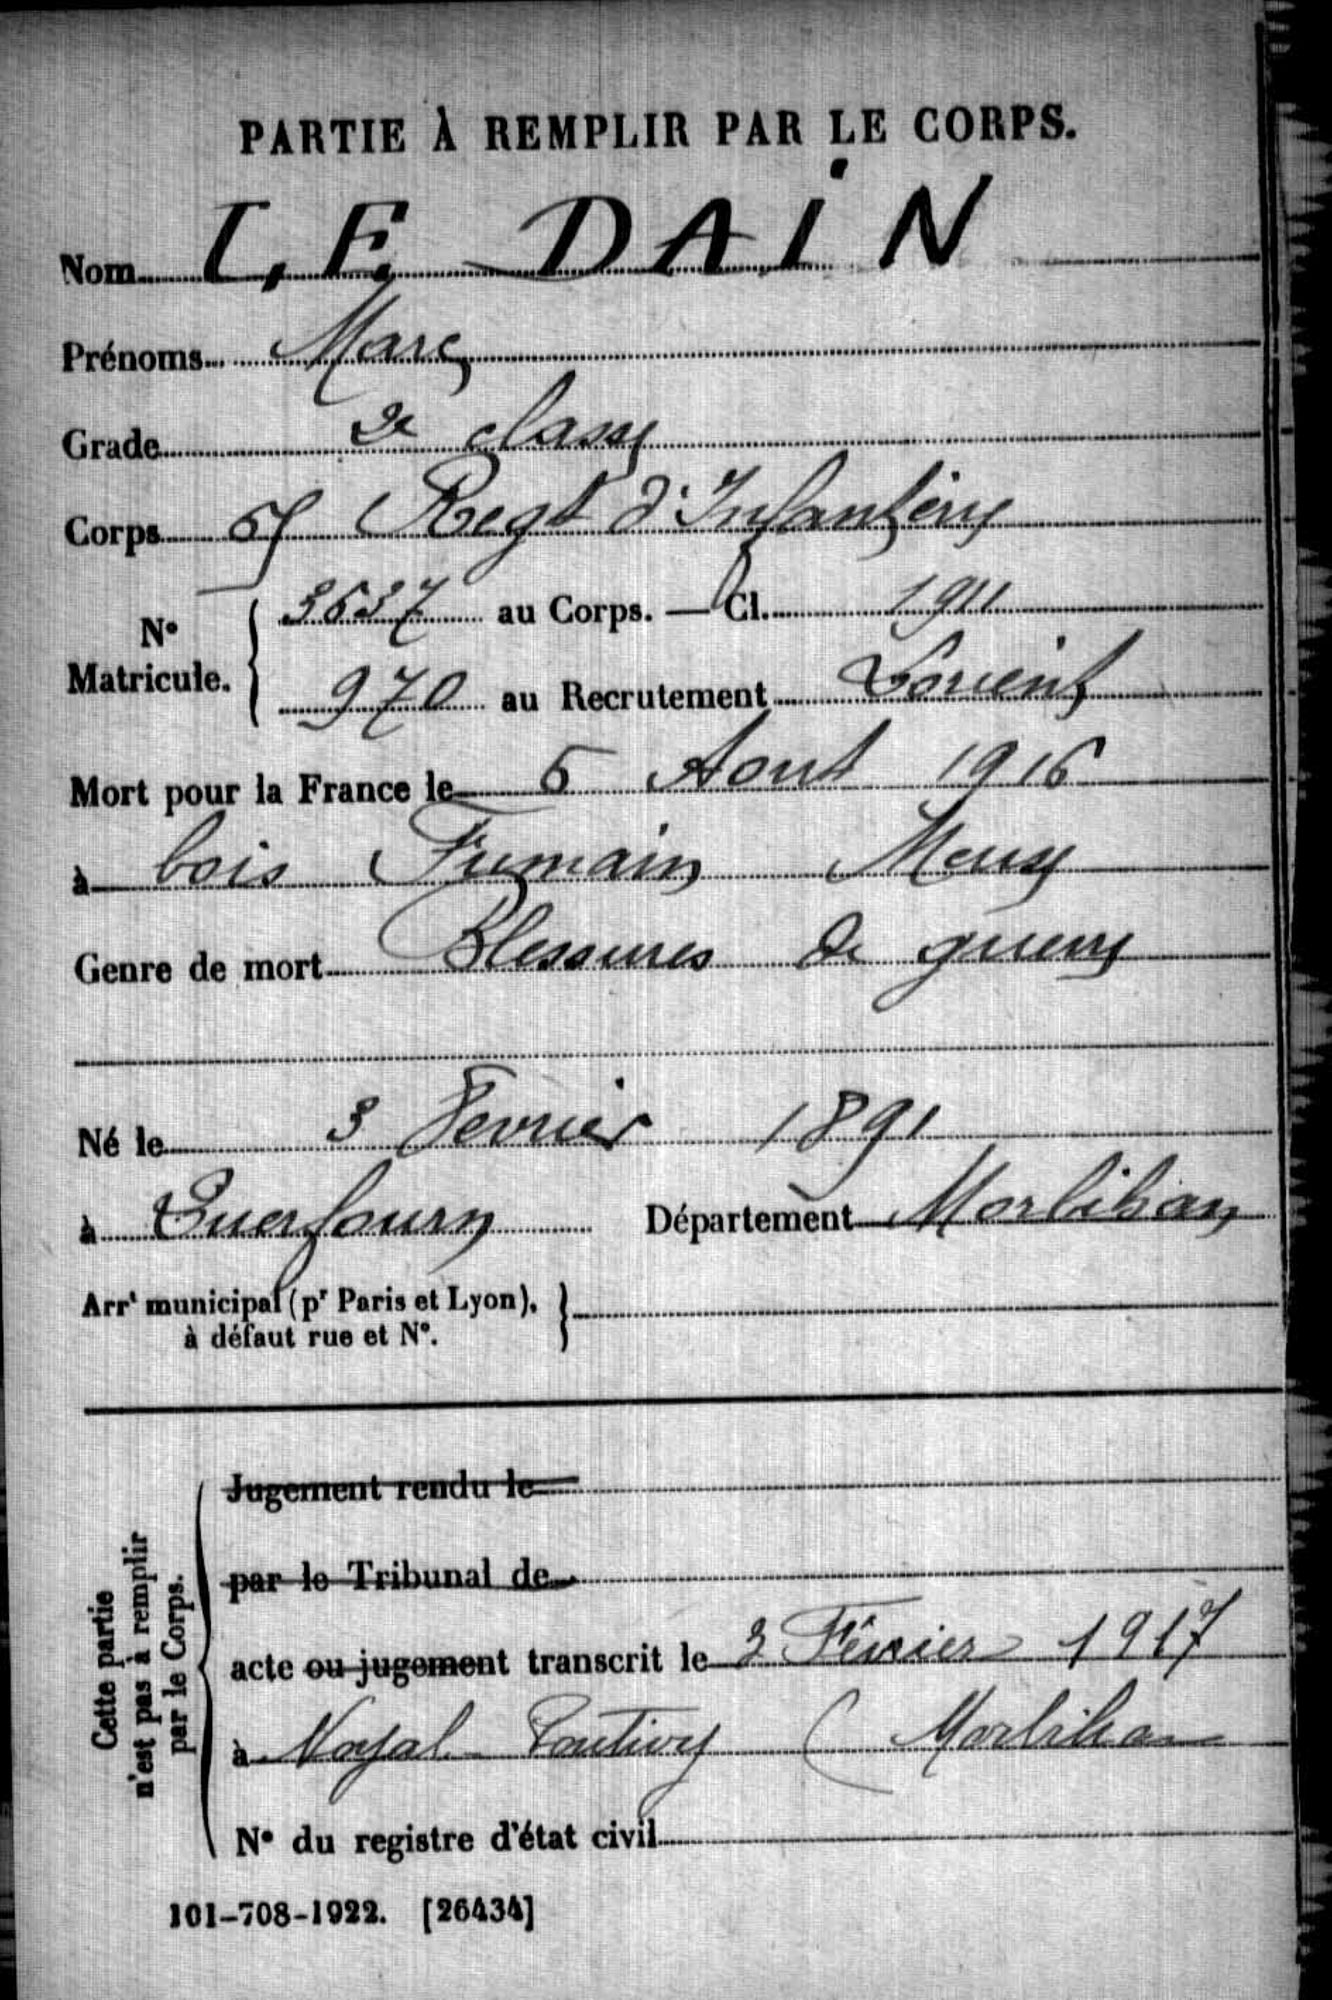 PARTIE À REMPLIR PAR LE CORPS.
Nom LE DAIN
Prénoms Marc
Grade 2e classe
Corps Regt d'Infanterie
N° Matricule. 3637 au Corps. — Cl. 1911
970 au Recrutement Lorient
Mort pour la France le 5 Aout 1916
à bois Fumain Meuse
Genre de mort Blessures de guerre
Né le 3 Fevrier 1891
à Département Morbihan
Arrt municipal (pr Paris et Lyon),
à défaut rue et N°.
Cette partie
n'est pas à remplir
par le Corps.
Jugement rendu le
par le Tribunal de
acte ou jugement transcrit le 3 Février 1917
à Noyal Pontivy (Morbihan
N° du registre d'état civil
101-708-1922. [26434]